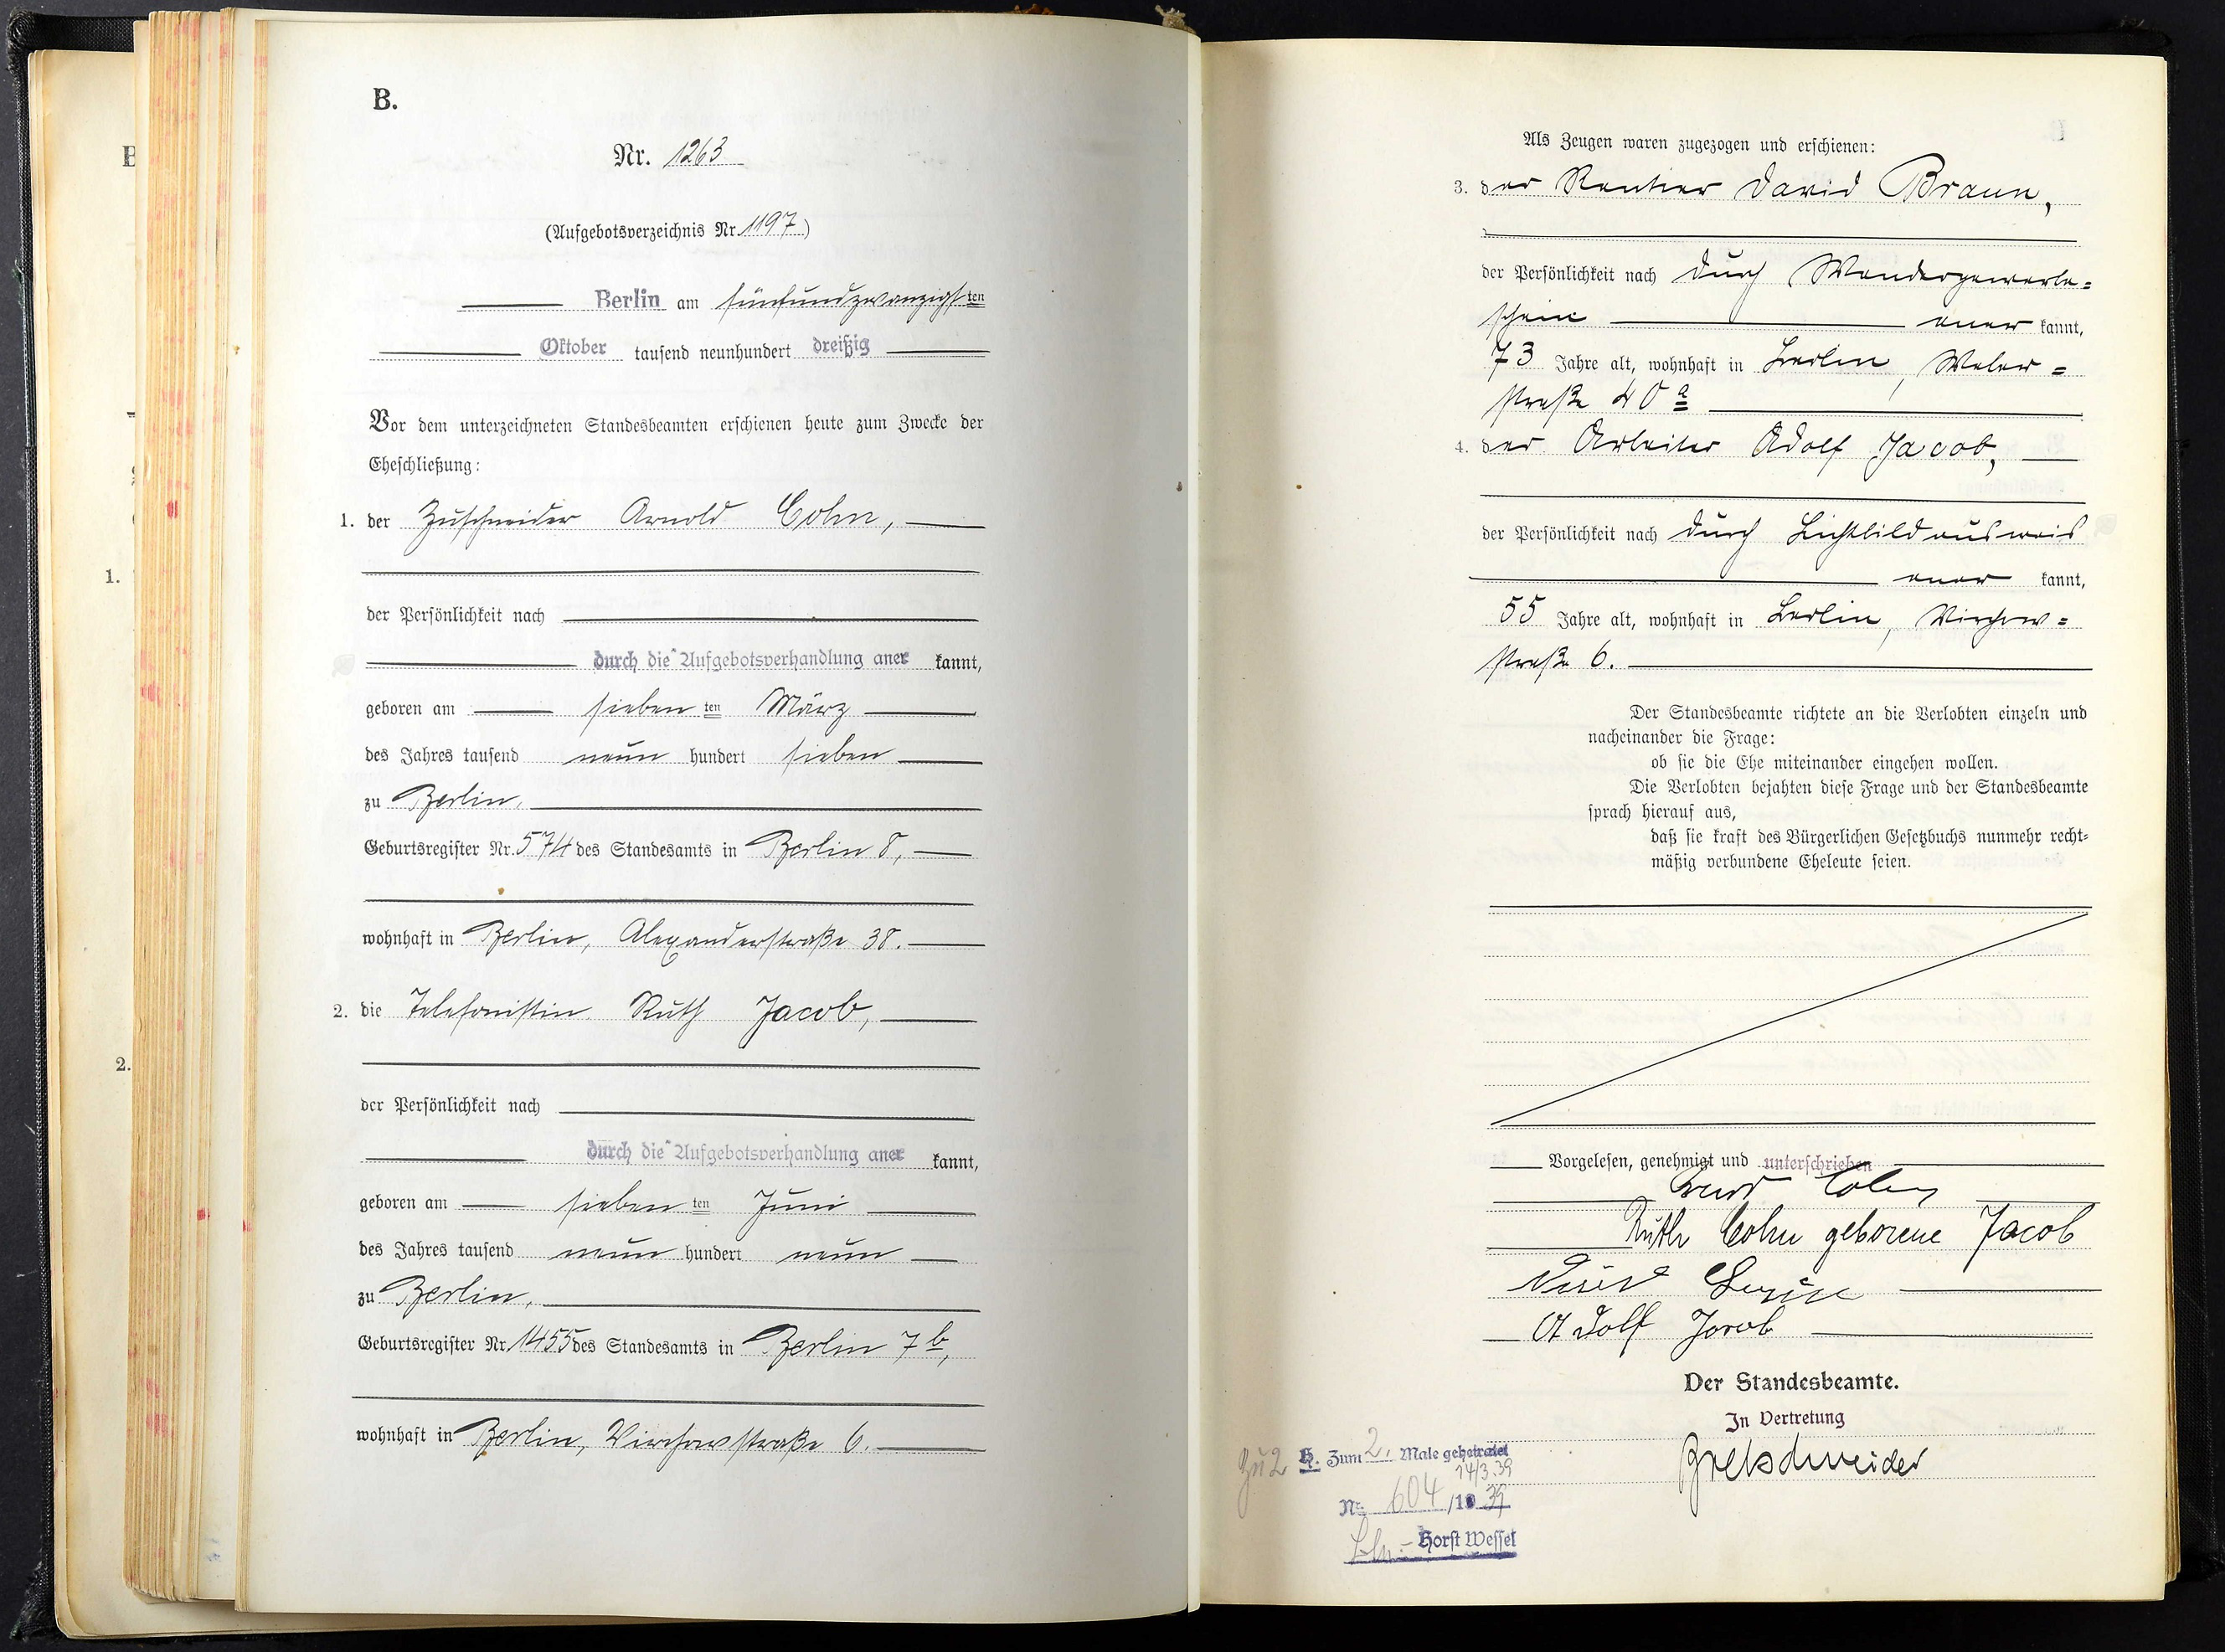 B.
Nr. 1263
(Aufgebotsverzeichnis Nr. 1197)
Berlin am fünfundzwanzigsten
Oktober tausend neunhundert dreißig
Vor dem unterzeichneten Standesbeamten erschienen heute zum Zwecke der
Eheschließung:
1. der Zuschneider Arnold Cohn,
der Persönlichkeit nach
durch die Aufgebotsverhandlung aner kannt,
geboren am sieben ten März
des Jahres tausend neun hundert sieben
zu Berlin,
Geburtsregister Nr. 574 des Standesamts in Berlin 8,
wohnhaft in Berlin, Alexanderstraße 38.
2. die Telefonistin Ruth Jacob,
der Persönlichkeit nach
durch die Aufgebotsverhandlung aner kannt,
geboren am sieben ten Juni
des Jahres tausend neun hundert neun
zu Berlin,
Geburtsregister Nr. 1455 des Standesamts in Berlin 7b,
wohnhaft in Berlin, Virchowstraße 6.
Als Zeugen waren zugezogen und erschienen:
3. der Rentier David Braun,
der Persönlichkeit nach durch Wandergewerbe=
schein aner kannt,
73 Jahre alt, wohnhaft in Berlin, Weber=
straße 40a
4. der Arbeiter Adolf Jacob,
der Persönlichkeit nach durch Lichtbildausweis
aner kannt,
55 Jahre alt, wohnhaft in Berlin, Virchow=
straße 6.
Der Standesbeamte richtete an die Verlobten einzeln und
nacheinander die Frage:
ob sie die Ehe miteinander eingehen wollen.
Die Verlobten bejahten diese Frage und der Standesbeamte
sprach hierauf aus,
daß sie kraft des Bürgerlichen Gesetzbuchs nunmehr recht=
mäßig verbundene Eheleute seien.
Vorgelesen, genehmigt und unterschrieben
Cohn
Ruth Cohn geborene Jacob
Adolf Jacob
Der Standesbeamte.
In Vertretung
Bretschneider
Zu 2 H. Zum 2. Male geheiratet
14/3.39
Nr. 604/1939
Bln.- Horst Wessel
B
1.
2.